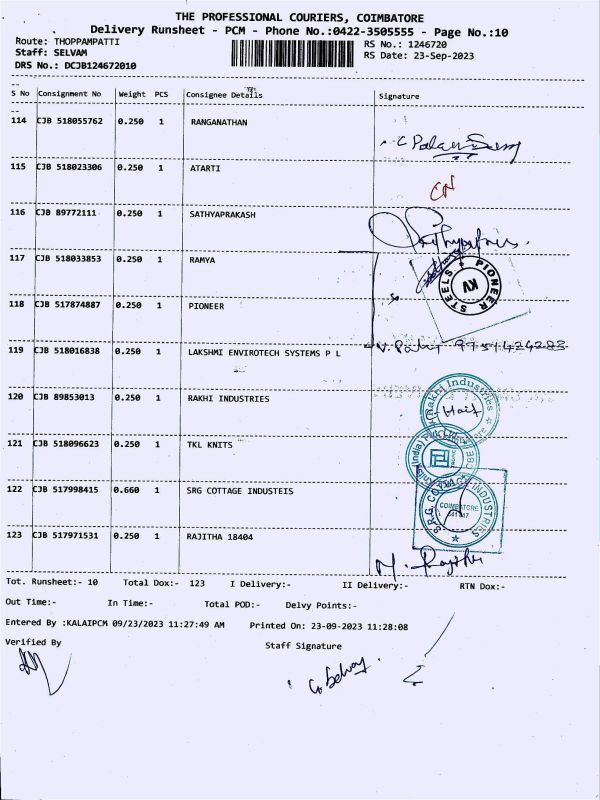 THE PROFESSIONAL COURIERS, COIMBATORE
Delivery Runsheet - PCM - Phone No.:0422-3505555 - Page No.:10
Route: THOPPAMPATTI
RS No.: 1246720
Staff: SELVAM
RS Date: 23-Sep-2023
DRS No.: DCJB124672010
S No Consignment No Weight PCS Consignee Details Signature
114 CJB 518055762 0.250 1 RANGANATHAN
115 CJB 518023306 0.250 1 ATARTI
CN
116 CJB 89772111 0.250 1 SATHYAPRAKASH
117 CJB 518033853 0.250 1 RAMYA
PIONEER STEELS KV
118 CJB 517874887 0.250 1 PIONEER
119 CJB 518016838 0.250 1 LAKSHMI ENVIROTECH SYSTEMS P L
120 CJB 89853013 0.250 1 RAKHI INDUSTRIES
Rakhi Industries
121 CJB 518096623 0.250 1 TKL KNITS
122 CJB 517998415 0.660 1 SRG COTTAGE INDUSTEIS
S.R.G. COTTAGE INDUSTRIES
COIMBATORE
123 CJB 517971531 0.250 1 RAJITHA 18404
Tot. Runsheet:- 10 Total Dox:- 123 I Delivery:- II Delivery:- RTN Dox:-
Out Time:- In Time:- Total POD:- Delvy Points:-
Entered By :KALAIPCM 09/23/2023 11:27:49 AM Printed On: 23-09-2023 11:28:08
Verified By Staff Signature
G. Selvam